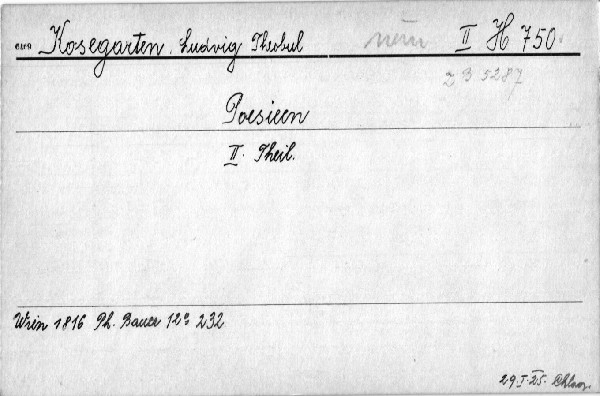 aus Kosegarten, Ludvig Theobul II H 750.
2 B 5287
Poesieen
II. Theil.
Wien 1816 Ph. Bauer 12° 232
29.I.25.